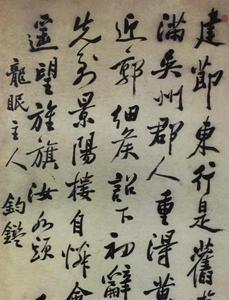 建節東行是舊
滿吳州郡人重得黃
迎郭細侯詔下初辭
先到景陽樓自憐
遙望旌旗汝水頭
龍眠主人 鈞鑑